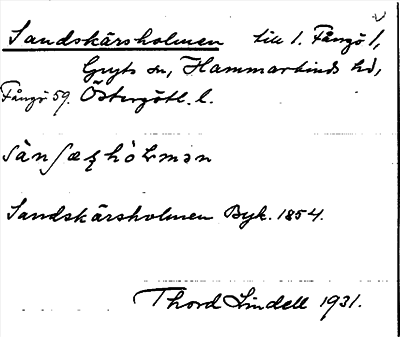 Sandskärsholmen till 1. Fångö 1,
Gryts sn, Hammarkinds hd,
Fångö 59. Östergötl. l.
Sandskärsholmen Byk. 1854.
Thord Lindell 1931.